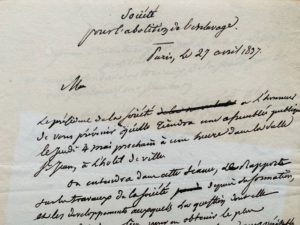 Société
pour l'abolition de l'esclavage.
Paris, le 27 avril 1837.
M
Le président de la Société a l'honneur
de vous prévenir qu'elle tiendra une assemblée publique
le jeudi 4 mai prochain à une heure dans la salle
St Jean, à l'hôtel de ville.
On entendra dans cette séance, le Rapport
sur les travaux de la Société depuis sa formation,
et les développements auxquels les questions
obtenir le plus